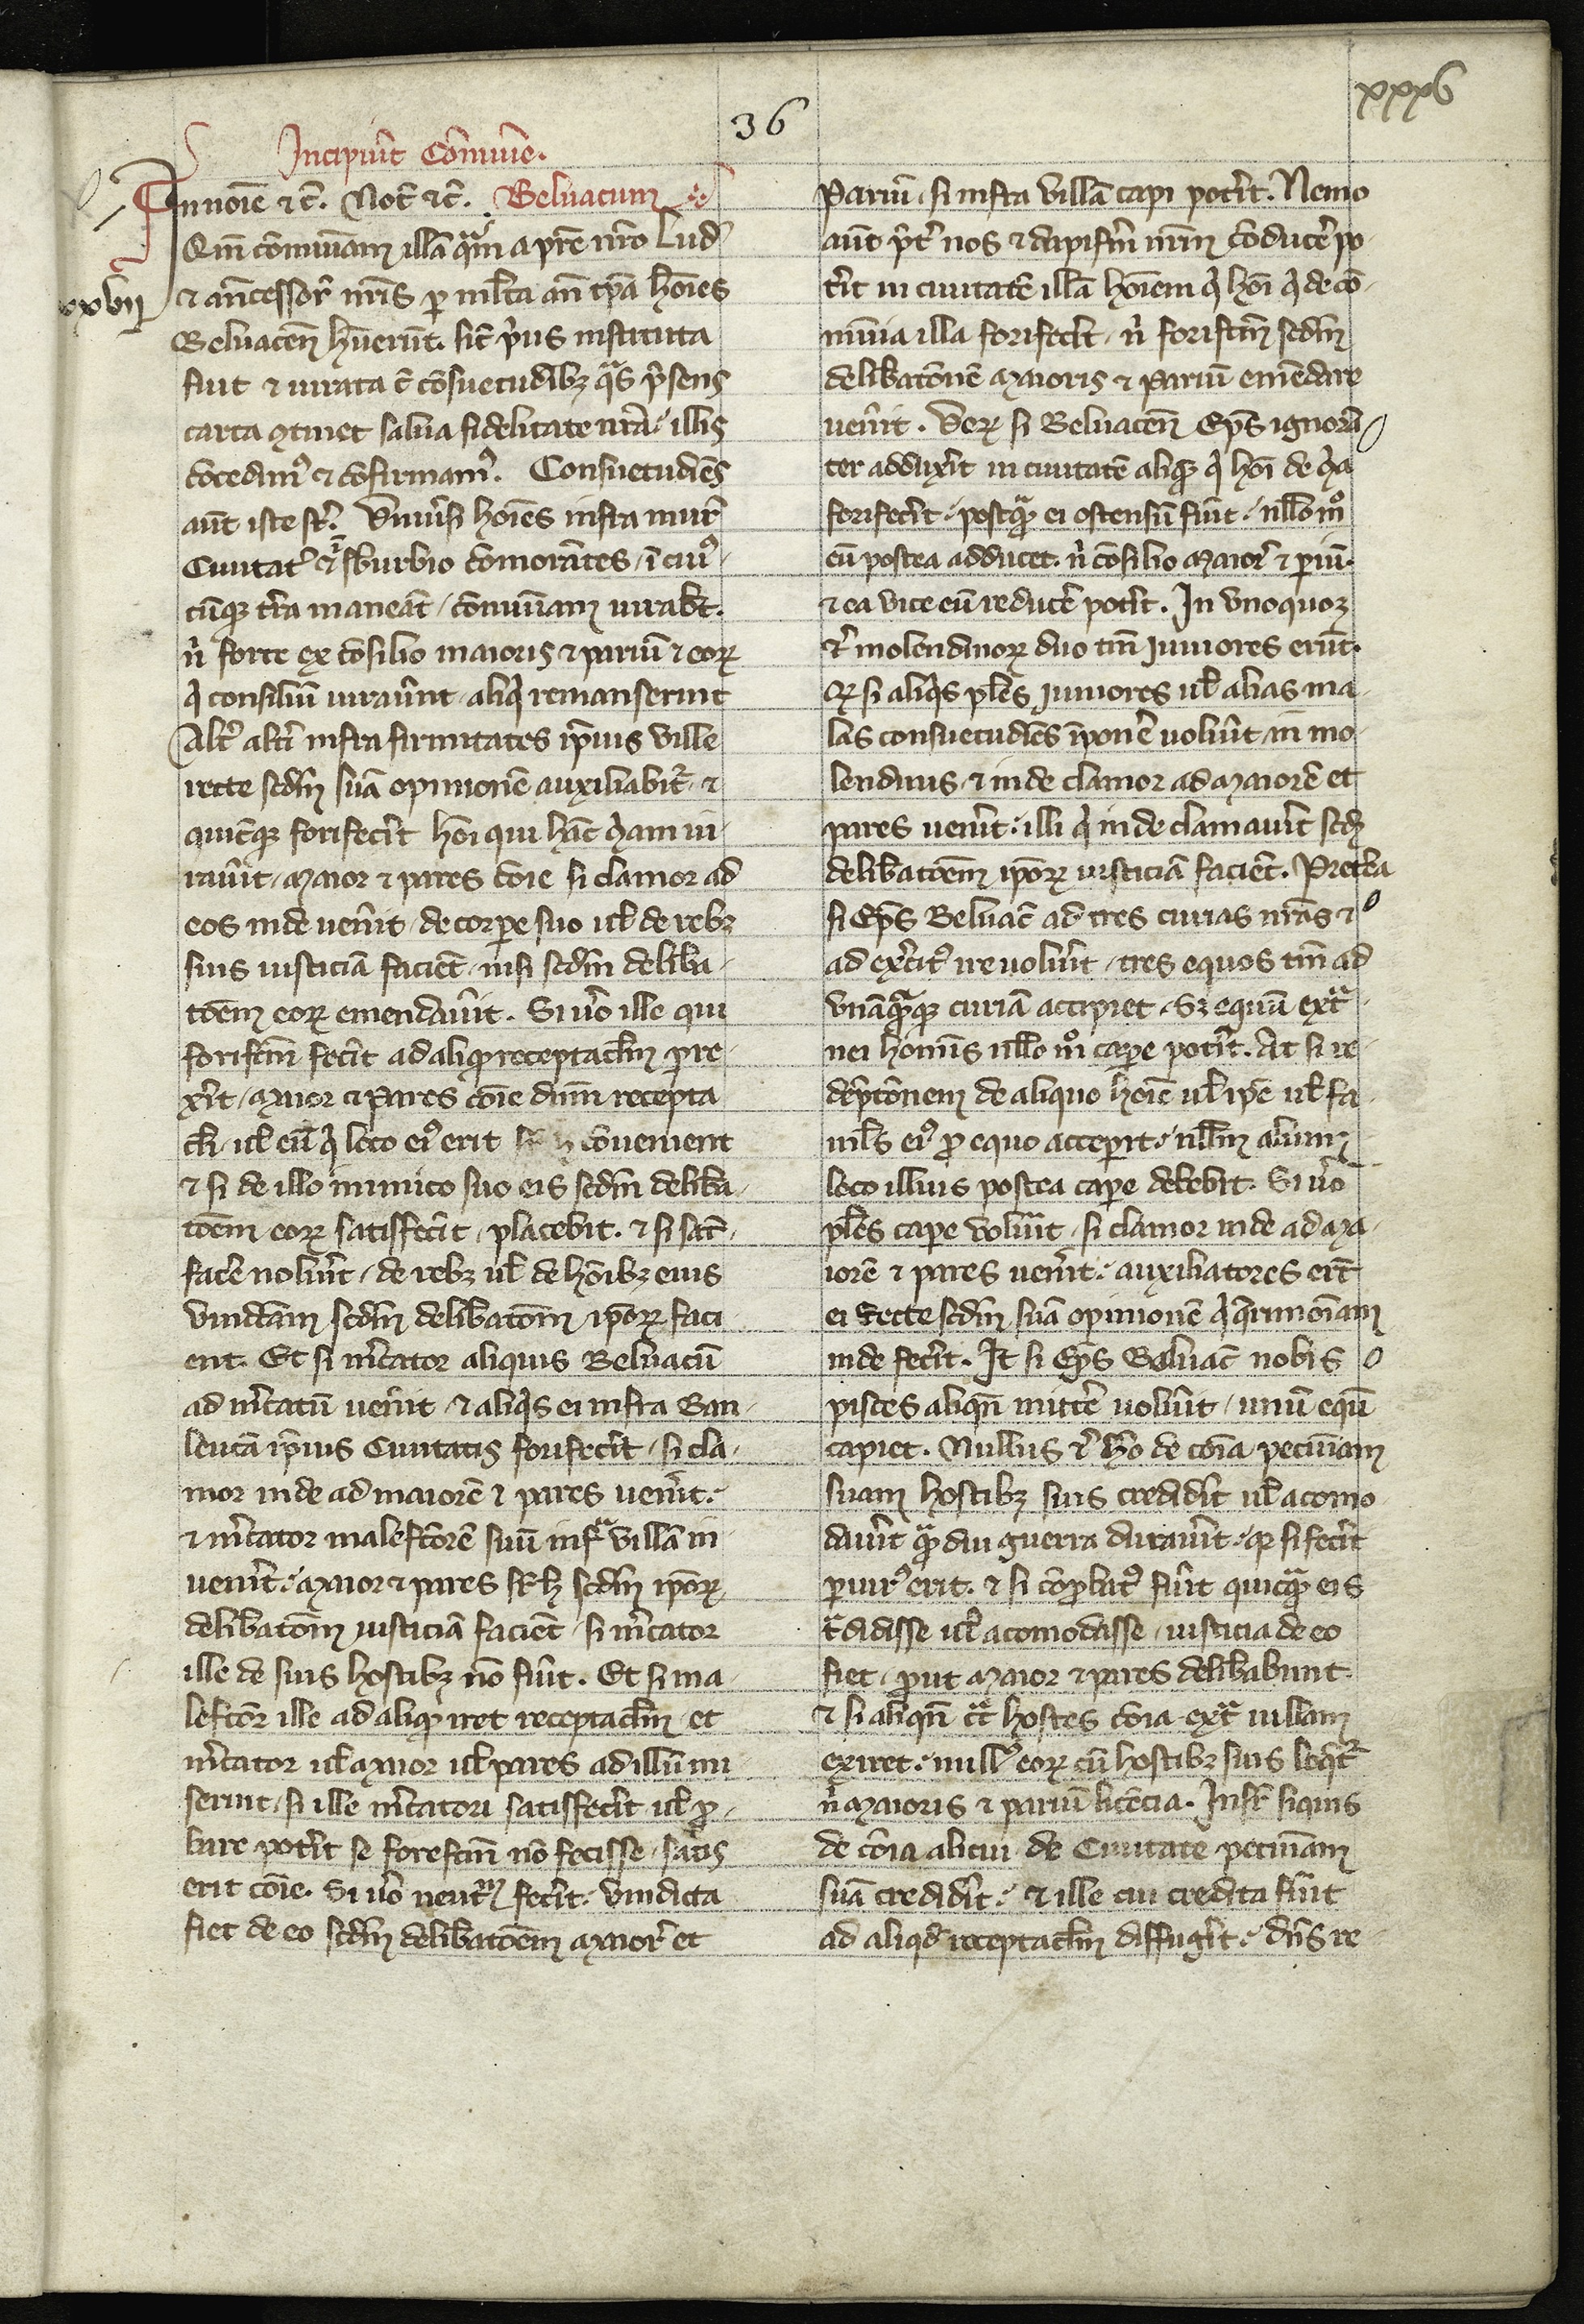 36
xxxv
Incipiūt Cōmuīe.
In noīe ⁊ c̄. Not̄ ⁊ c̄. Beluacum
Qm̄ cōmuniam illā quam a pr̄e nr̄o Lud̉
xxvij
⁊ an̄cessor̉ nr̄is ꝑ ml̄ta an̄ tp̄a hoīes
Beluaceñ hūerūt. sic̄ p̉us instituta
fuit ⁊ iurata c̄ cōsuetudībꝫ qͣs p̉sens
carta ꝯtinet salua fidelitate nr̄a illis
cōcedimꝰ ⁊ cōfirmamꝰ. Consuetudīes
aūt iste st̄. Vniūsi hoīes infra mur̉
Ciuitat̉ ⁊ ī sburbio cōmorātes / ī cuiꝰ
cūqꝫ tr̄a maneāt / cōmuniam iurabt̄.
n̉ forte ex cōsilio maioris ⁊ pariū ⁊ eoꝝ
q̉ consiliū iurauīnt aliq̉ remanserint
Alt̉ alt̉i infra firmitates ip̄ius ville
recte scd̄m suā opinionē auxiliabit̉ ⁊
quicūqꝫ forifecīt hoī qui hāc q̉am iu
rauīt / maior ⁊ pares cōie si clamor ad
eos inde venīt / de corꝑe suo ul̄ de rebꝫ
suis iusticiā facient̄ nisi scd̄m deliba
tōem eoꝝ emendauīt. Si ūo ille qui
forifcm̄ fecīt ad aliqꝫ receptaclm̄ ꝑre
xīt / maior ⁊ Pares cōie dnm̄ recepta
cli ul̄ eū q̉ loco eiꝰ erit conuenient
⁊ si de illo inimico suo eis scd̄m deliba
tōem eoꝝ satisfecīt / placebit. ⁊ si sat̉
facē noluīt / de rebꝫ ul̄ de hoībꝫ eius
vindcam scd̄m delibatōm ip̄oꝝ faci
ent. Et si m̄cator aliquis Beluacū
ad m̄catū venīt ⁊ aliq̉s ei infra Ban
leucā ip̄ius Ciuitatis forifecīt / si cla
mor inde ad maiorē ⁊ pares venīt.
⁊ m̄cator malefcorē suū infͣ villā in
venīt / maior ⁊ pares scd̄m ip̄oꝝ
delibatōm iusticiā facient̄ / si m̄cator
ille de suis hostibꝫ nō fuīt. Et si ma
lefcor̄ ille ad aliqꝫ iret receptaclm̄ et
m̄cator ul̄ maior ul̄ pares ad illū mi
serint / si ille m̄catori satisfecīt ul̄ ꝓ
bare potīt se forefcm̄ nō fecisse / satis
erit cōie. Si ūo neutꝝ fecīt / vindicta
fiet de eo scd̄m delibatōem maior̉ et
Pariū / si infra villā capi potīt. Nemo
aūt p̉t̉ nos ⁊ dapifm̄ nr̄m conducē po
tīt in ciuitatē illā hoīem q̉ hoī q̉ de cō
munia illa forifecīt / n̉ forifcm̄ scd̄m
delibatōnē maioris ⁊ Pariū emēdare
venīt. Veꝝ si Beluaceñ Ep̄s ignorā
ter adduxīt in ciuitatē aliqꝫ q̉ hoī de q̉a
forifecīt postqͣm ei ostensū fuīt / nllō mº
eū postea adducet. n̉ cōsilio maior̉ ⁊ pariū.
⁊ ea vice eū reducē potīt. In vnoquoqꝫ
⁊c̉ molendinoꝝ duo tm̄ Juniores erūt.
Qꝫ si aliq̉s ples Juniores ul̄ alias ma
las consuetudīes īponē voluīt in mo
lendinis ⁊ inde clamor ad maiorē et
pares venīt illi q̉ inde clamauīt scd̄m
delibatōem ip̄oꝝ iusticiā facient̄. Pret̉ea
si Ep̄s Beluac̄ ad tres curias nr̄as ⁊
ad exc̉it̉ ire voluīt / tres equos tm̄ ad
vnāqͣmqꝫ curiā accipiet. Sꝫ equū extͣ
nei homīs nllō mº capere potīt. At si re
dēptōnem de aliquo hoīe ul̄ ip̄e ul̄ fa
mls eiꝰ ꝓ equo acceperit / nllm̄ alium
loco illius postea capere debebit. Si ūo
ples capere voluīt / si clamor inde ad ma
iorē ⁊ pares venīt / auxiliatores erūt
ei Recte scd̄m suā opinionē q̉ q̉rimoīam
inde fecīt. It̄ si Ep̄s Beluac̄ nobis
pisces aliqn̄ mittē voluīt / unū equū
capiet. Nullus ⁊c̉ hō de cōia pecuniam
suam hostibꝫ suis crediderit ul̄ acomo
dauīt qͣmdiu guerra durauīt / qꝛ si fecīt
periurꝰ erit. ⁊ si cōprobatꝰ fuīt quicqͣm eis
tͣdidisse ul̄ acomodasse / iusticia de eo
fiet / ꝓut maior ⁊ pares delibabunt
⁊ si aliqn̄ cͣ hostes cōia extͣ villam
exiret / nullꝰ eoꝝ cū hostibꝫ suis loq̉t̉
n̉ maioris ⁊ pariū licēcia. Insꝑ siquis
de cōia alicui de Ciuitate pecuniam
suā credidīt / ⁊ ille cui credita fuīt
ad aliqd̉ receptaclm̄ diffugīt / dn̄s re